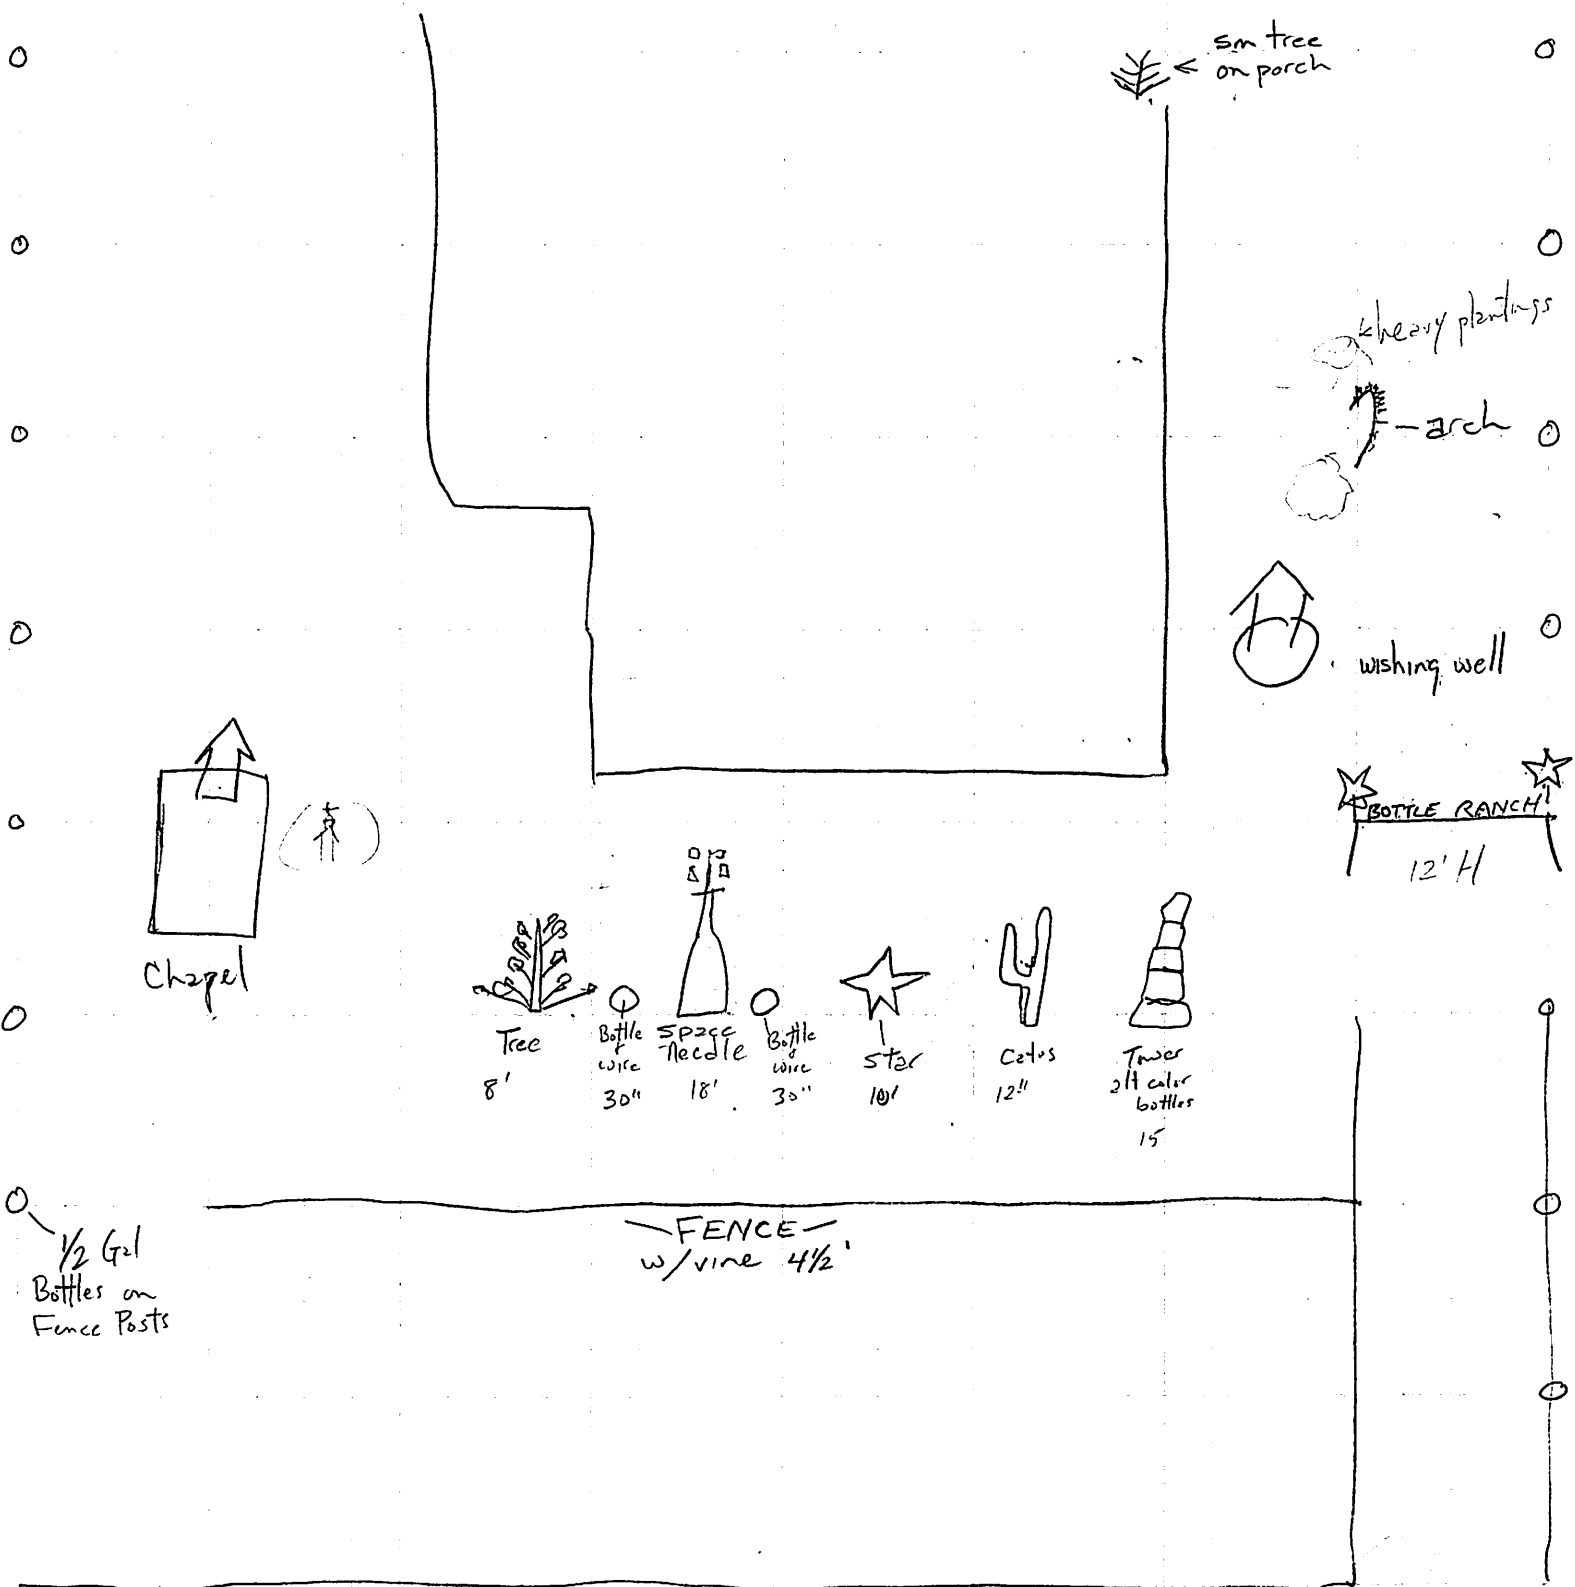 sm tree
on porch
heavy plantings
arch
wishing well
BOTTLE RANCH
12' H
Chapel
Tree
8'
Bottle
& wire
30"
Space
Needle
18'
Bottle
& wire
30"
Star
10'
Catus
12"
Tower
alt color
bottles
15
FENCE
w/vine 4½'
1/2 Gal
Bottles on
Fence Posts